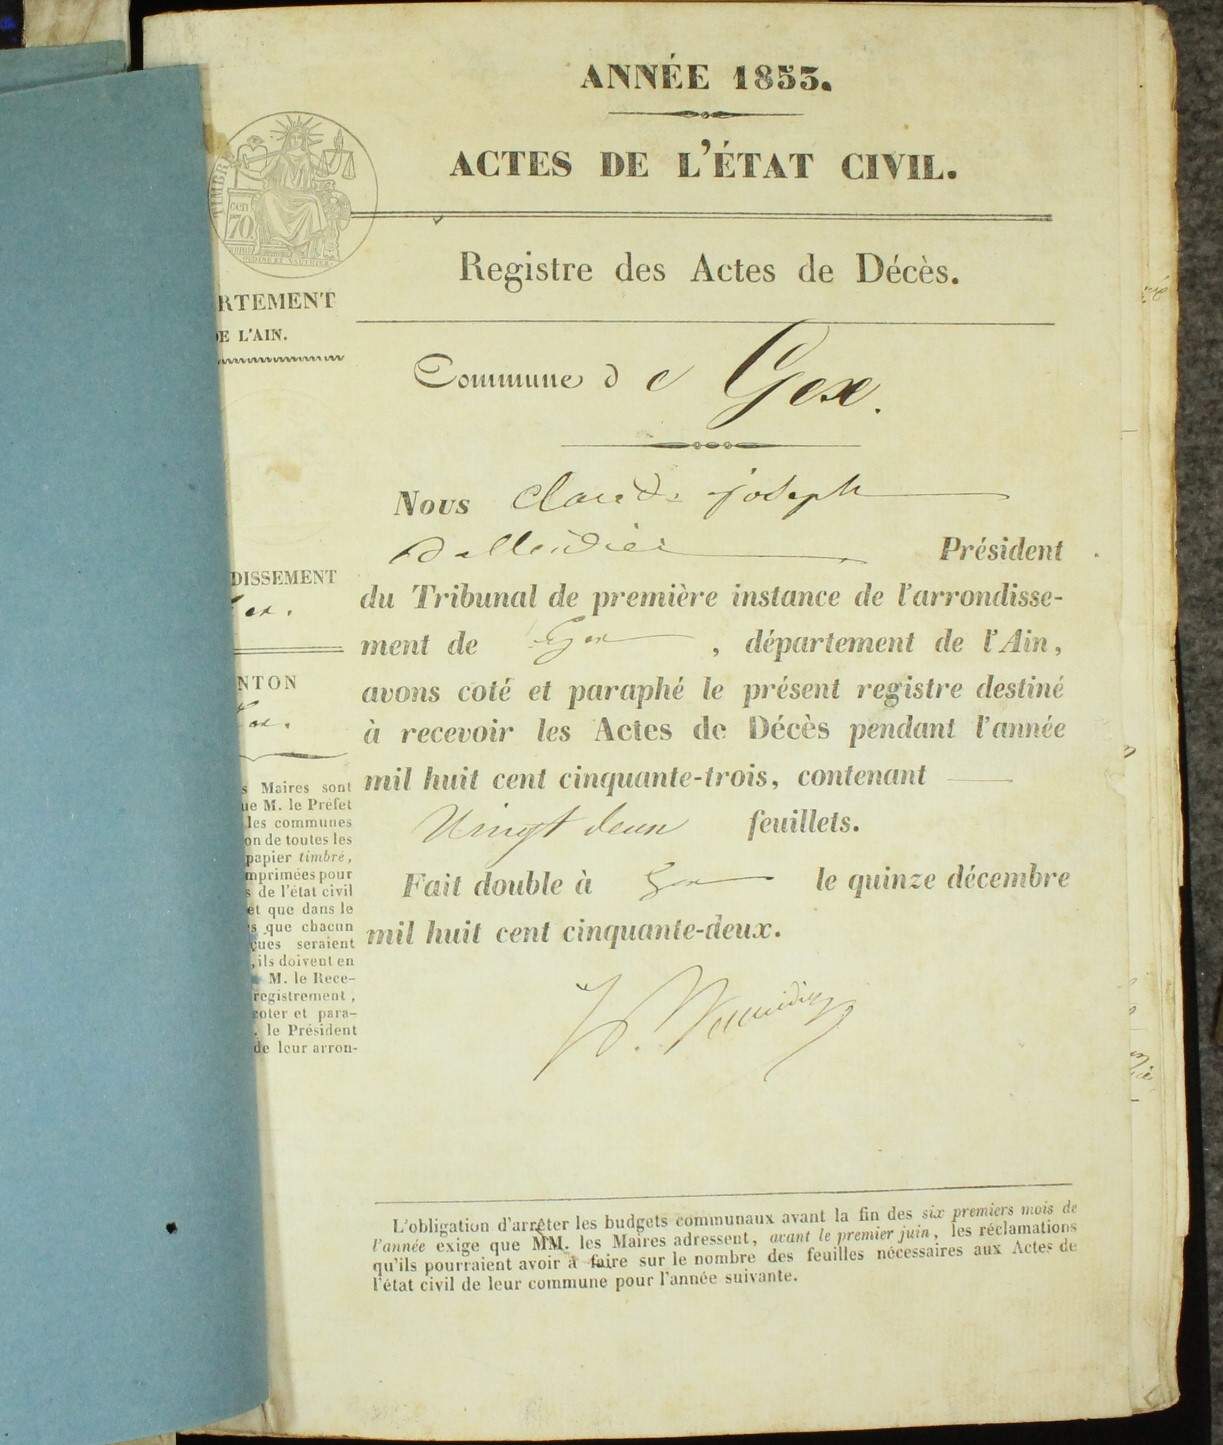 ANNÉE 1853.
ACTES DE L'ÉTAT CIVIL.
TIMBRE
cen
70
Registre des Actes de Décès.
RTEMENT
DE L'AIN.
Commune de Gex.
Nous Claude joseph
Président
DISSEMENT
du Tribunal de première instance de l'arrondisse-
Gex.
ment de Gex, département de l'Ain,
NTON
avons coté et paraphé le présent registre destiné
Gex.
à recevoir les Actes de Décès pendant l'année
mil huit cent cinquante-trois, contenant
Vingt deux feuillets.
Fait double à Gex le quinze décembre
mil huit cent cinquante-deux.
s Maires sont
ue M. le Préfet
les communes
on de toutes les
papier timbré,
mprimées pour
s de l'état civil
et que dans le
s que chacun
ques seraient
, ils doivent en
M. le Rece-
registrement,
coter et para-
. le Président
de leur arron-
L'obligation d'arrêter les budgets communaux avant la fin des six premiers mois de
l'année exige que MM. les Maires adressent, avant le premier juin, les réclamations
qu'ils pourraient avoir à faire sur le nombre des feuilles nécessaires aux Actes de
l'état civil de leur commune pour l'année suivante.